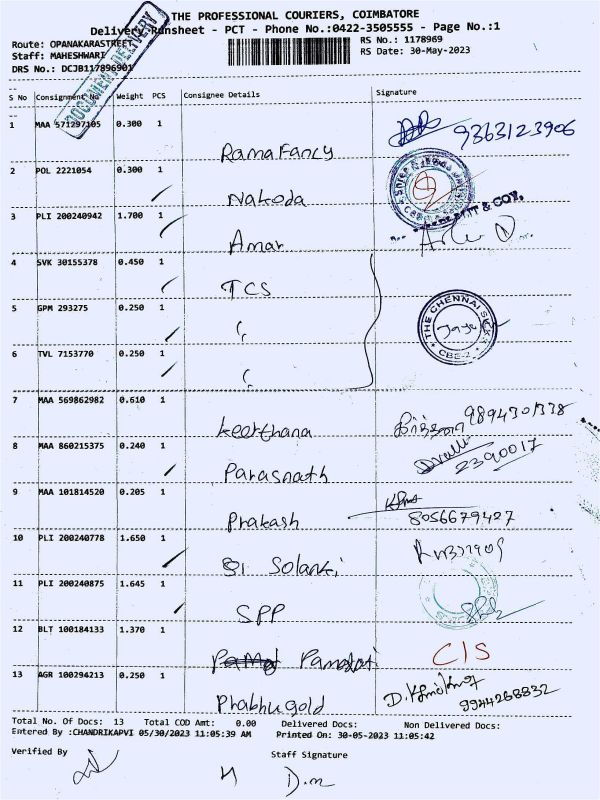 THE PROFESSIONAL COURIERS, COIMBATORE
Delivery Runsheet - PCT - Phone No.:0422-3505555 - Page No.:1
Route: OPANAKARASTREET RS No.: 1178969
Staff: MAHESHWARI RS Date: 30-May-2023
DRS No.: DCJB117896901
DOCUMENT DELIVERY
S No Consignment No Weight PCS Consignee Details Signature
1 MAA 571297105 0.300 1 Rama Fancy 9363123906
2 POL 2221054 0.300 1 Nakoda
& COY.
3 PLI 200240942 1.700 1 Amar
4 SVK 30155378 0.450 1 TCS
5 GPM 293275 0.250 1 "
THE CHENNAI SILKS CBE-2
6 TVL 7153770 0.250 1 "
7 MAA 569862982 0.610 1 Keerthana 9894301338
8 MAA 860215375 0.240 1 Parasnath 2390017
9 MAA 101814520 0.205 1 Prakash 8056679427
10 PLI 200240778 1.650 1 Solanki
11 PLI 200240875 1.645 1 SPP
12 BLT 100184133 1.370 1 CIS
13 AGR 100294213 0.250 1 Prabhu gold 9944268832
Total No. Of Docs: 13 Total COD Amt: 0.00 Delivered Docs: Non Delivered Docs:
Entered By :CHANDRIKAPVI 05/30/2023 11:05:39 AM Printed On: 30-05-2023 11:05:42
Verified By Staff Signature